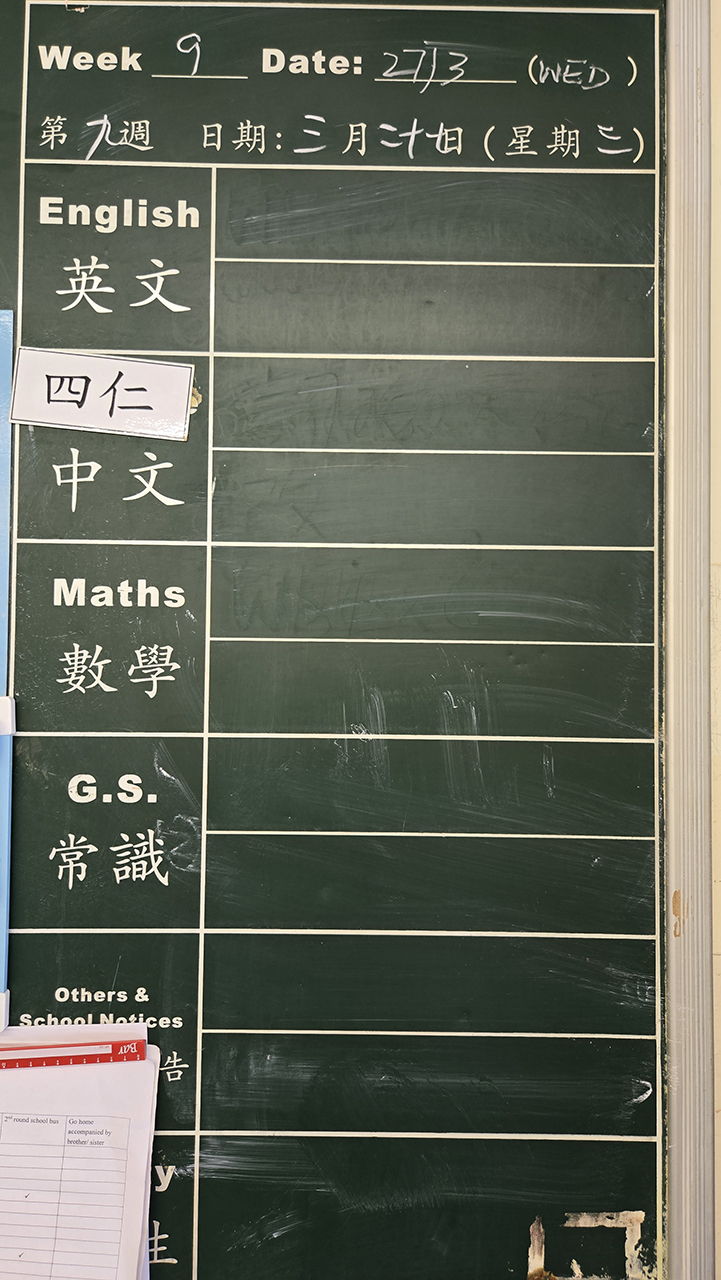 Week 9 Date: 27/3 (WED)
第九週 日期:三月二十七日(星期三)
English
英文
四仁
中文
Maths
數學
G.S.
常識
Others &
School Notices
告
y
生
Bar
2nd round school bus
Go home
accompanied by
brother/ sister